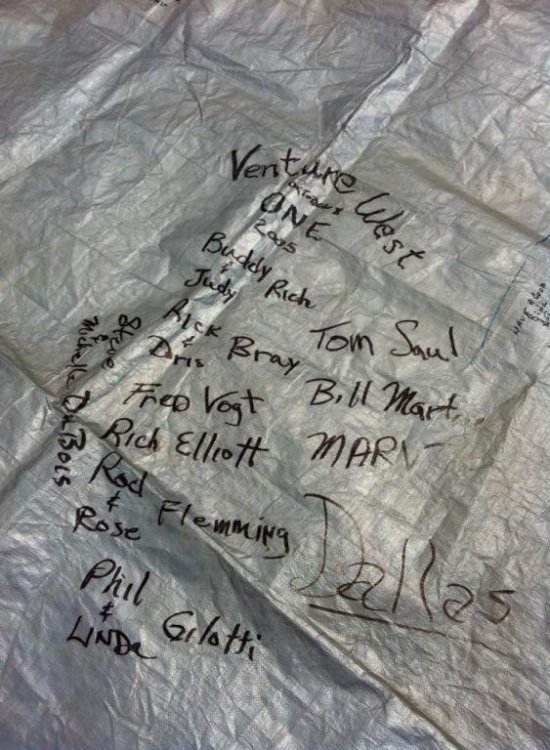 Venture West
ONE
2005
Buddy
& Rich
Judy
Rick
& Bray
Dris
Tom Saul
Fred Vogt
Bill Mart
Rich Elliott
MARV
Steve
&
Michelle DuBois
Rod
& Flemming
Rose
Dallas
Phil
& Gilotti
LINDA